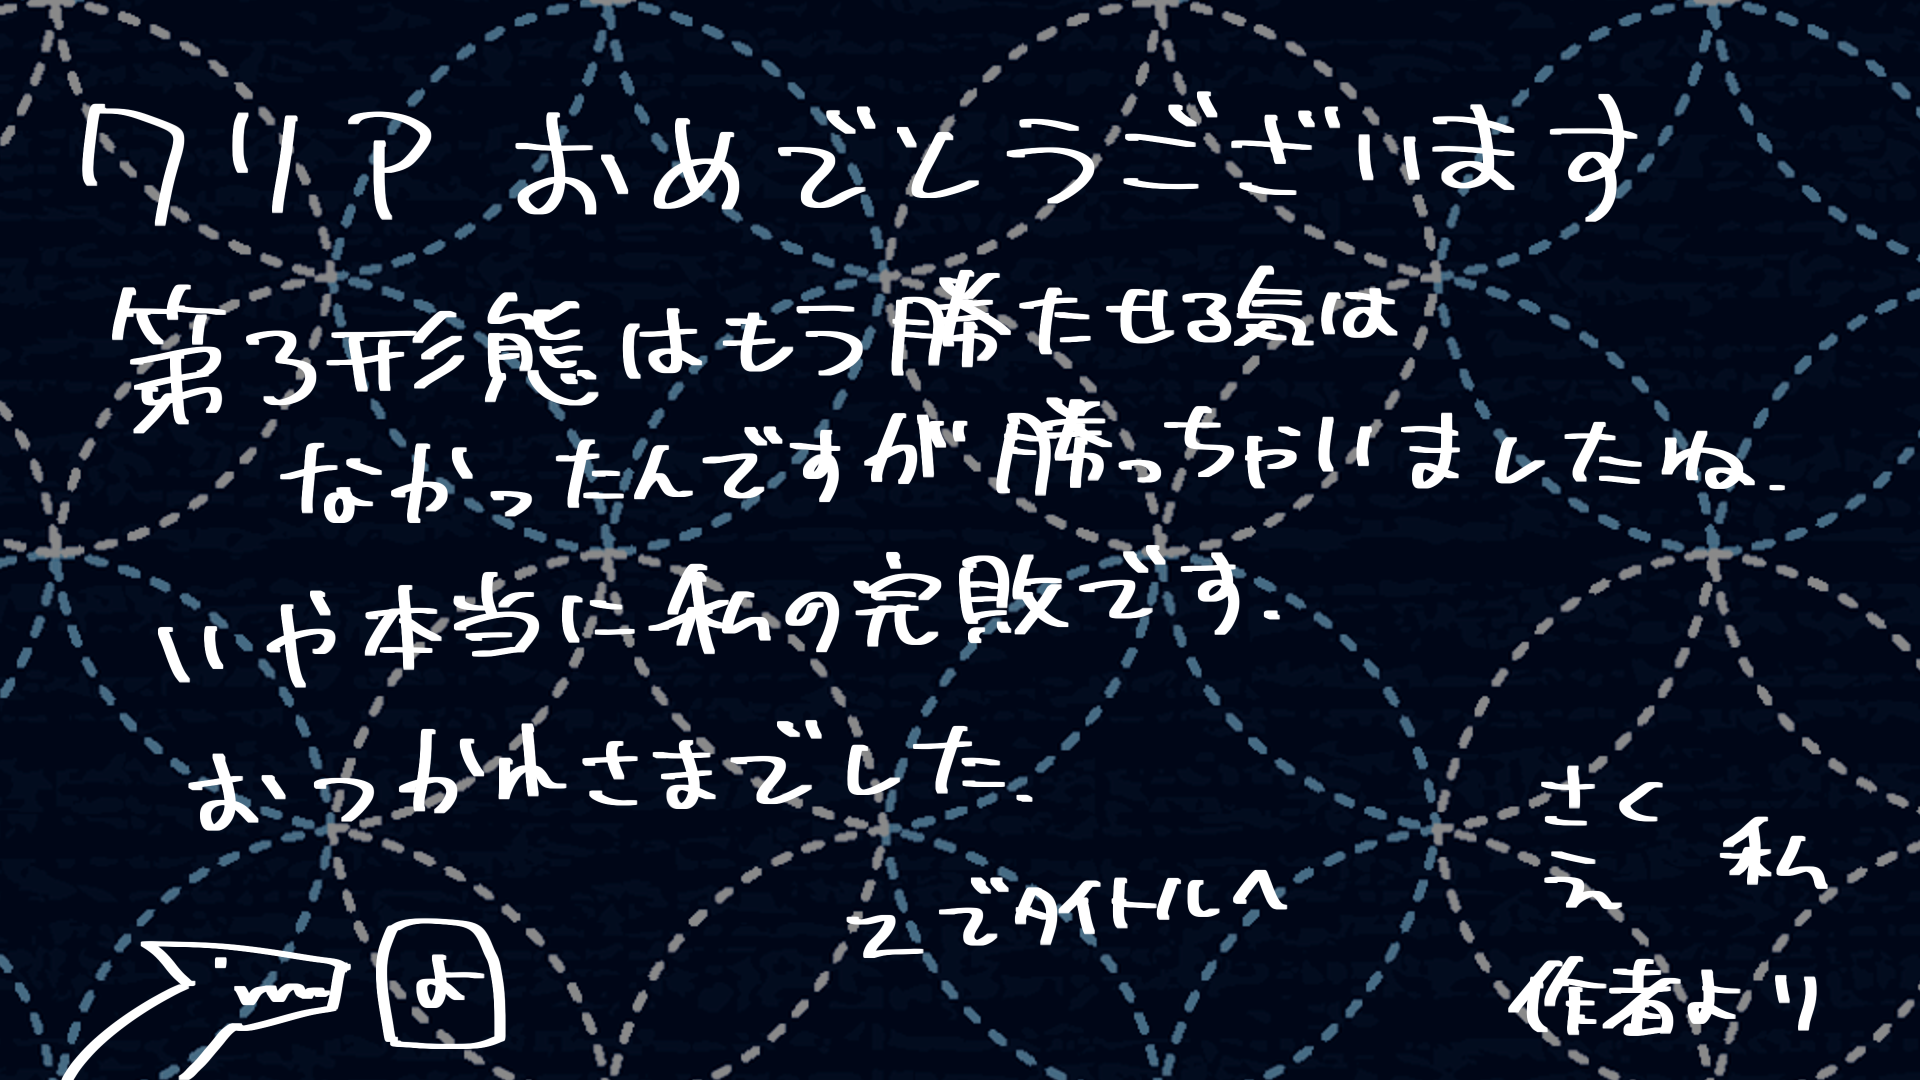 クリア おめでとうございます
第3形態はもう勝たせる気は
なかったんですが勝っちゃいましたね.
いや本当に私の完敗です.
おつかれさまでした.
Zでタイトルへ
さく
え
私
作者より
よ